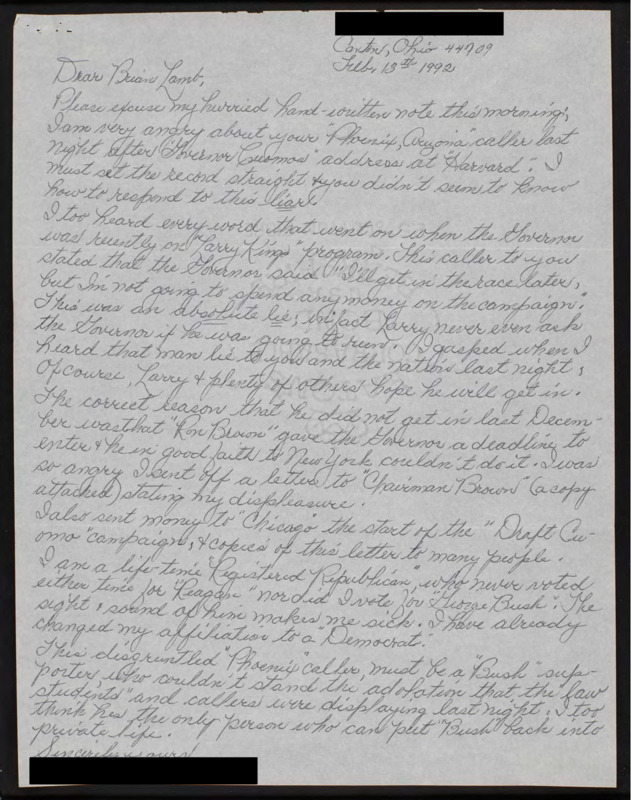 Canton, Ohio 44709
Feb. 13th 1992
Dear Brian Lamb,
Please excuse my hurried hand-written note this morning;
I am very angry about your "Phoenix, Arizona" caller last
night after "Governor Cuomos" address at "Harvard". I
must set the record straight & you didn't seem to know
how to respond to this liar!
I too heard every word that went on when the Governor
was recently on "Larry Kings" program. This caller to you
stated that the Governor said "I'll get in the race later,
but I'm not going to spend any money on the campaign".
This was an absolute lie; infact Larry never even ask
the Governor if he was going to run. I gasped when I
heard that man lie to you and the nation last night;
Of course, Larry & plenty of others hope he will get in.
The correct reason that he did not get in last Decem-
ber was that "Ron Brown" gave the Governor a deadline to
enter & he in good faith to New York couldn't do it. I was
so angry I sent off a letter to "Chairman Brown" (a copy
attached) stating my displeasure.
I also sent money to "Chicago" the start of the "Draft Cu-
omo" campaign, & copies of this letter to many people.
I am a life-time "Registered Republican", who never voted
either time for "Reagan" nor did I vote for "George Bush". The
sight & sound of him makes me sick. I have already
changed my affiliation to a Democrat.
This disgruntled "Phoenix" caller, must be a "Bush" sup-
porter, who couldn't stand the adoration that the law
students" and callers were displaying last night. I too
think he's the only person who can put "Bush" back into
private life.
Sincerely yours